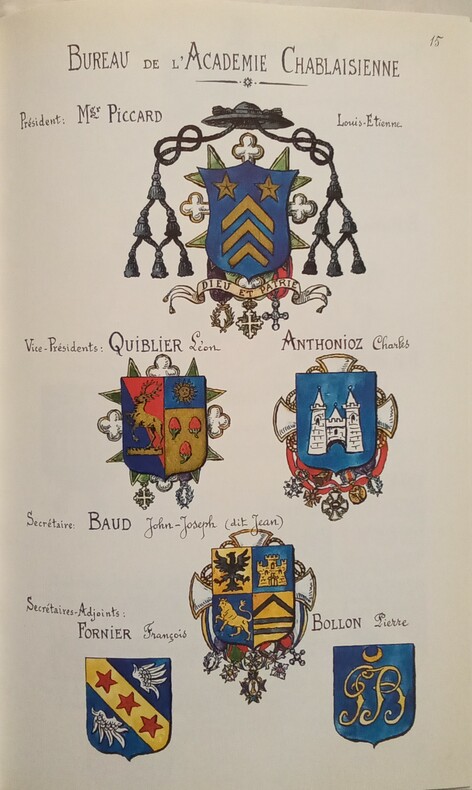 15
BUREAU DE L'ACADEMIE CHABLAISIENNE
Président: Mgr PICCARD Louis-Etienne
DIEU ET PATRIE
Vice-Présidents: QUIBLIER Léon ANTHONIOZ Charles
Secrétaire: BAUD John-Joseph (dit Jean)
Secrétaires-Adjoints:
FORNIER François BOLLON Pierre
PB